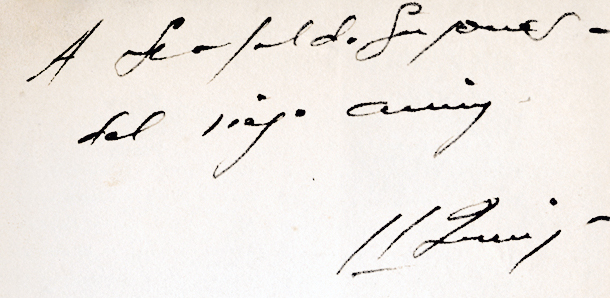 A Leopoldo Lugones -
del viejo amigo
H Quiroga -